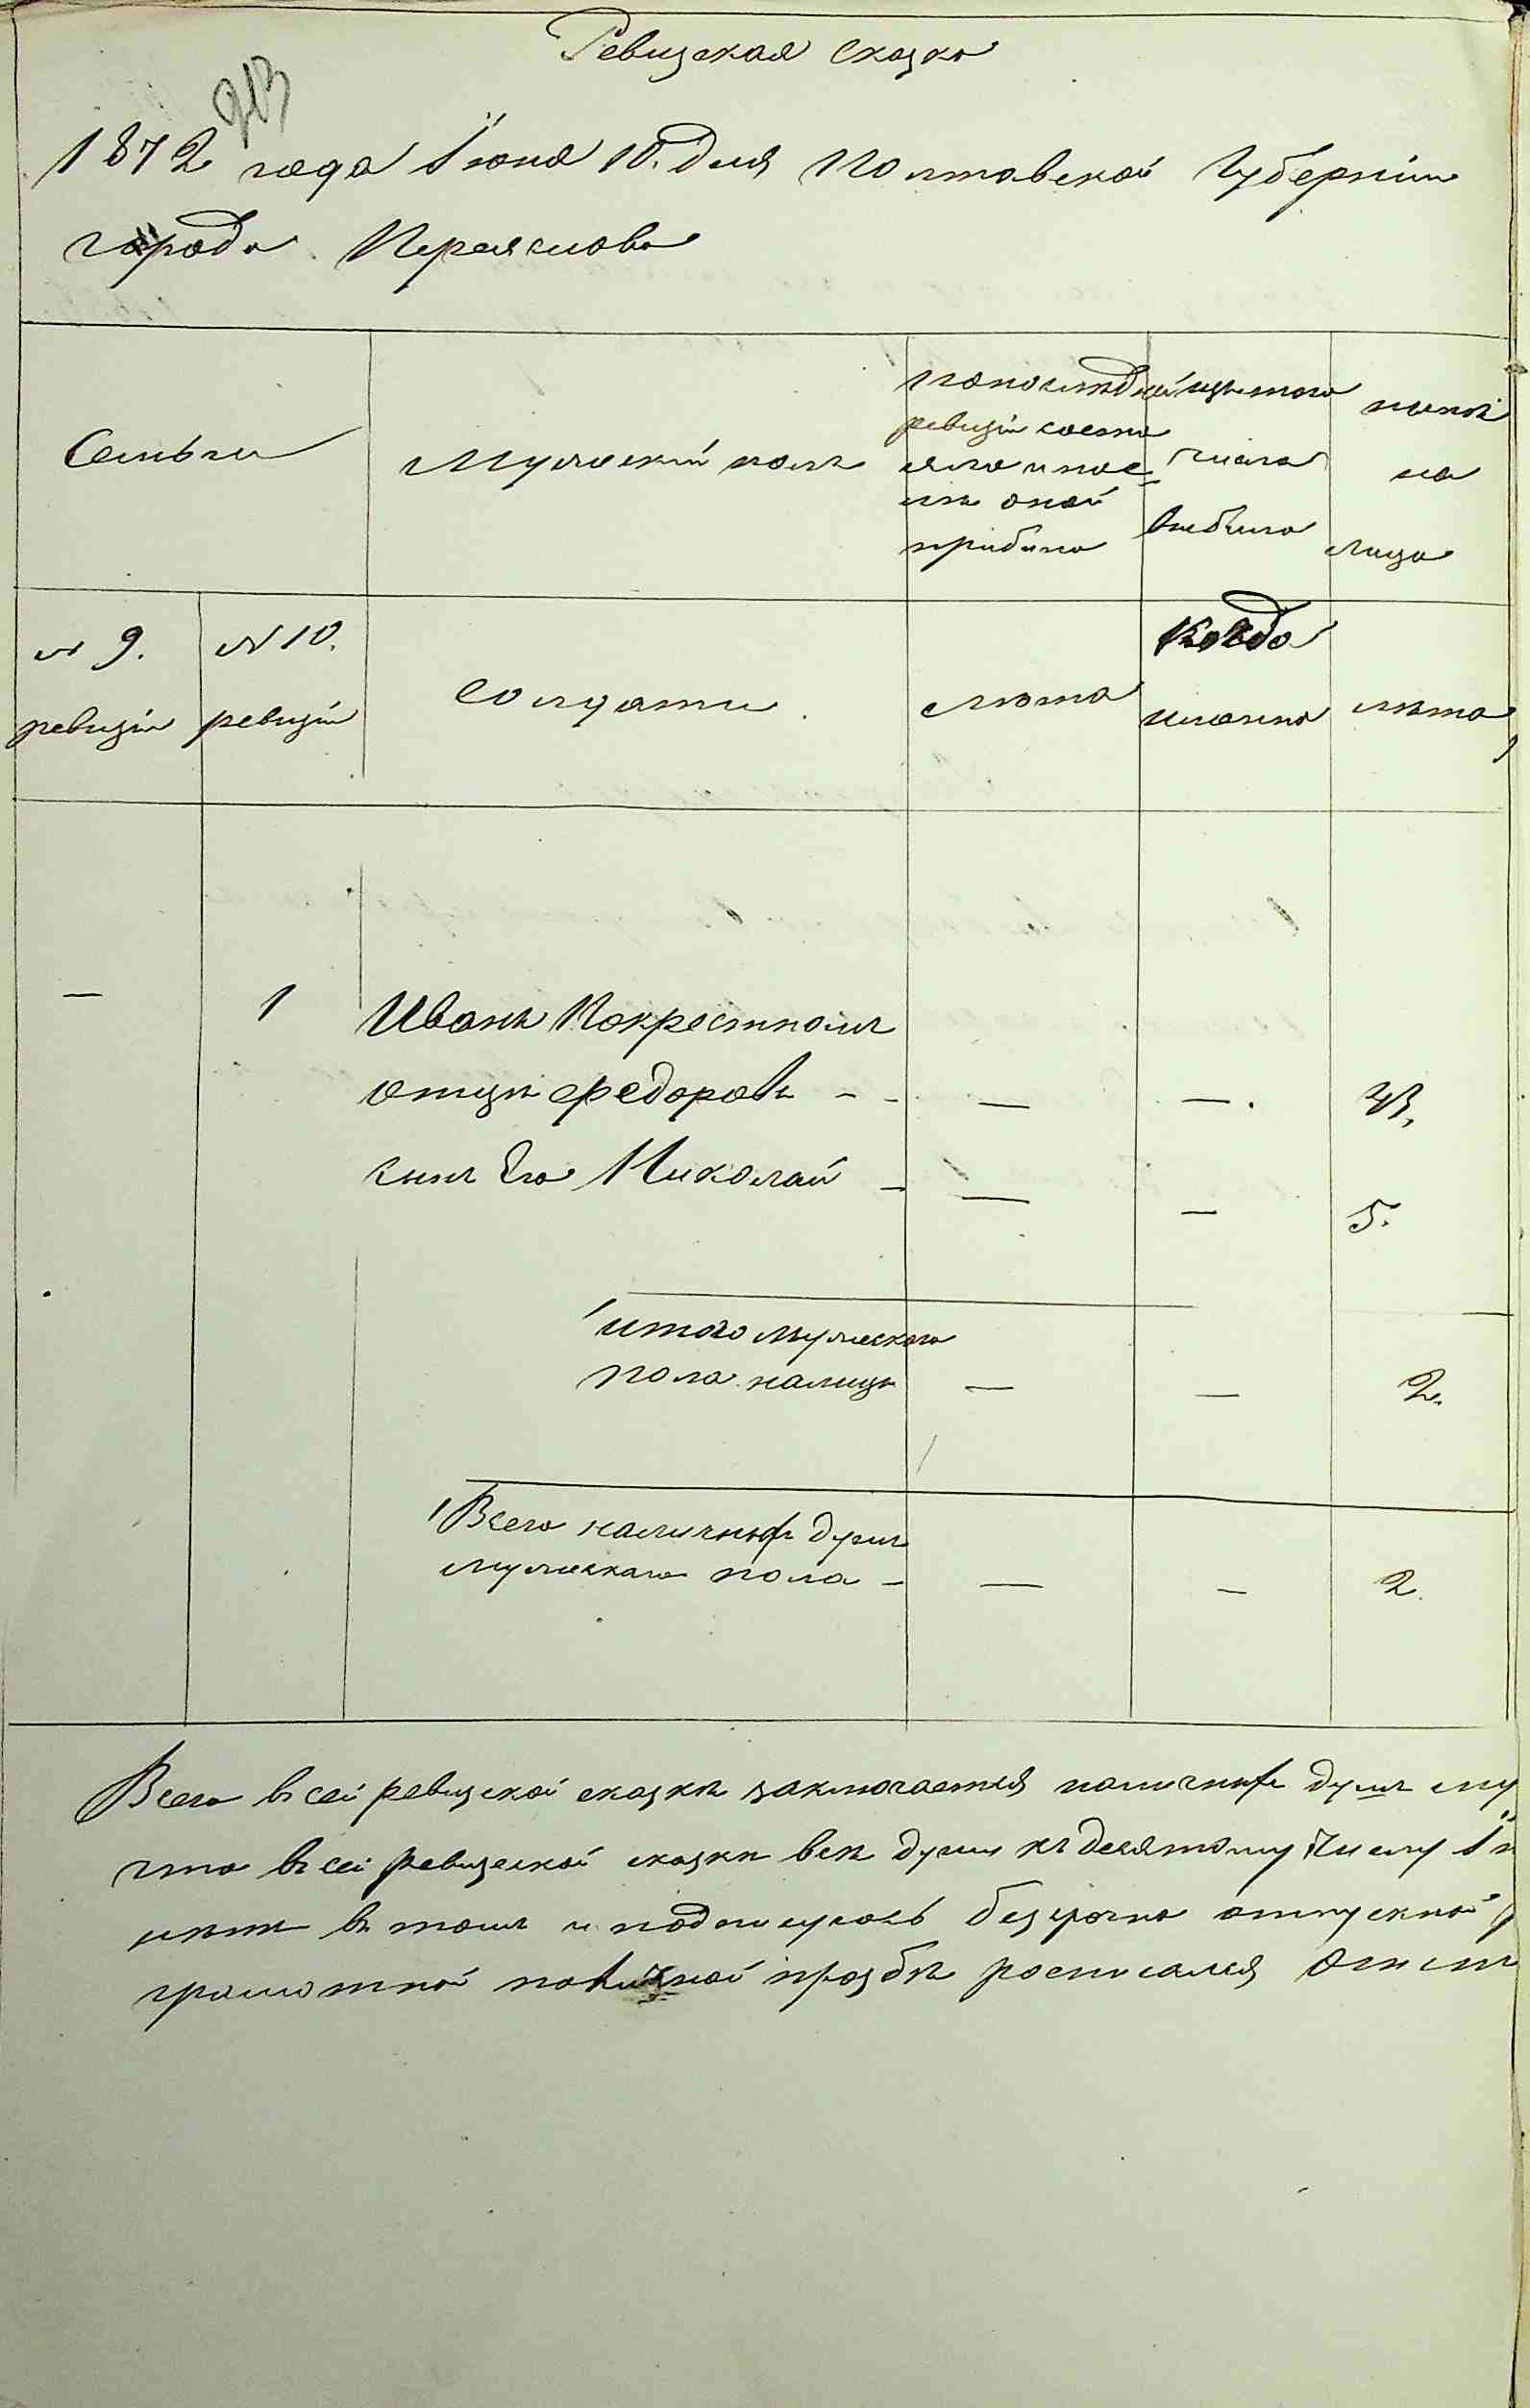 Ревизская сказка
213
1872 года Іюня 10. дня Полтавской Губерніи
города Переяслова
Семьи
Мужескій полъ
попоследней
ревизіи состо
яло и пос
лѣ оной
прибыло
изътого
числа
выбыло
ныне
на
лицо
№ 9.
ревизіи
№ 10.
ревизіи
Солдаты
лѣта
Когда
именно
лѣта
— 1 Иванъ Покрестному
отцу Федоровъ — — — 43.
сынъ Его Николай — — — 5.
итого мужеского
пола налицо — — 2.
Всего наличныхъ душъ
мужескаго пола — — — 2.
Всего въ сей ревизской сказкѣ заключается наличныхъ душъ му
что въ сей ревизской сказки всѣ души къ десятому числу
въ томъ и подпишуюсь безсрочно отпускной
грамотной прозбѣ росписался